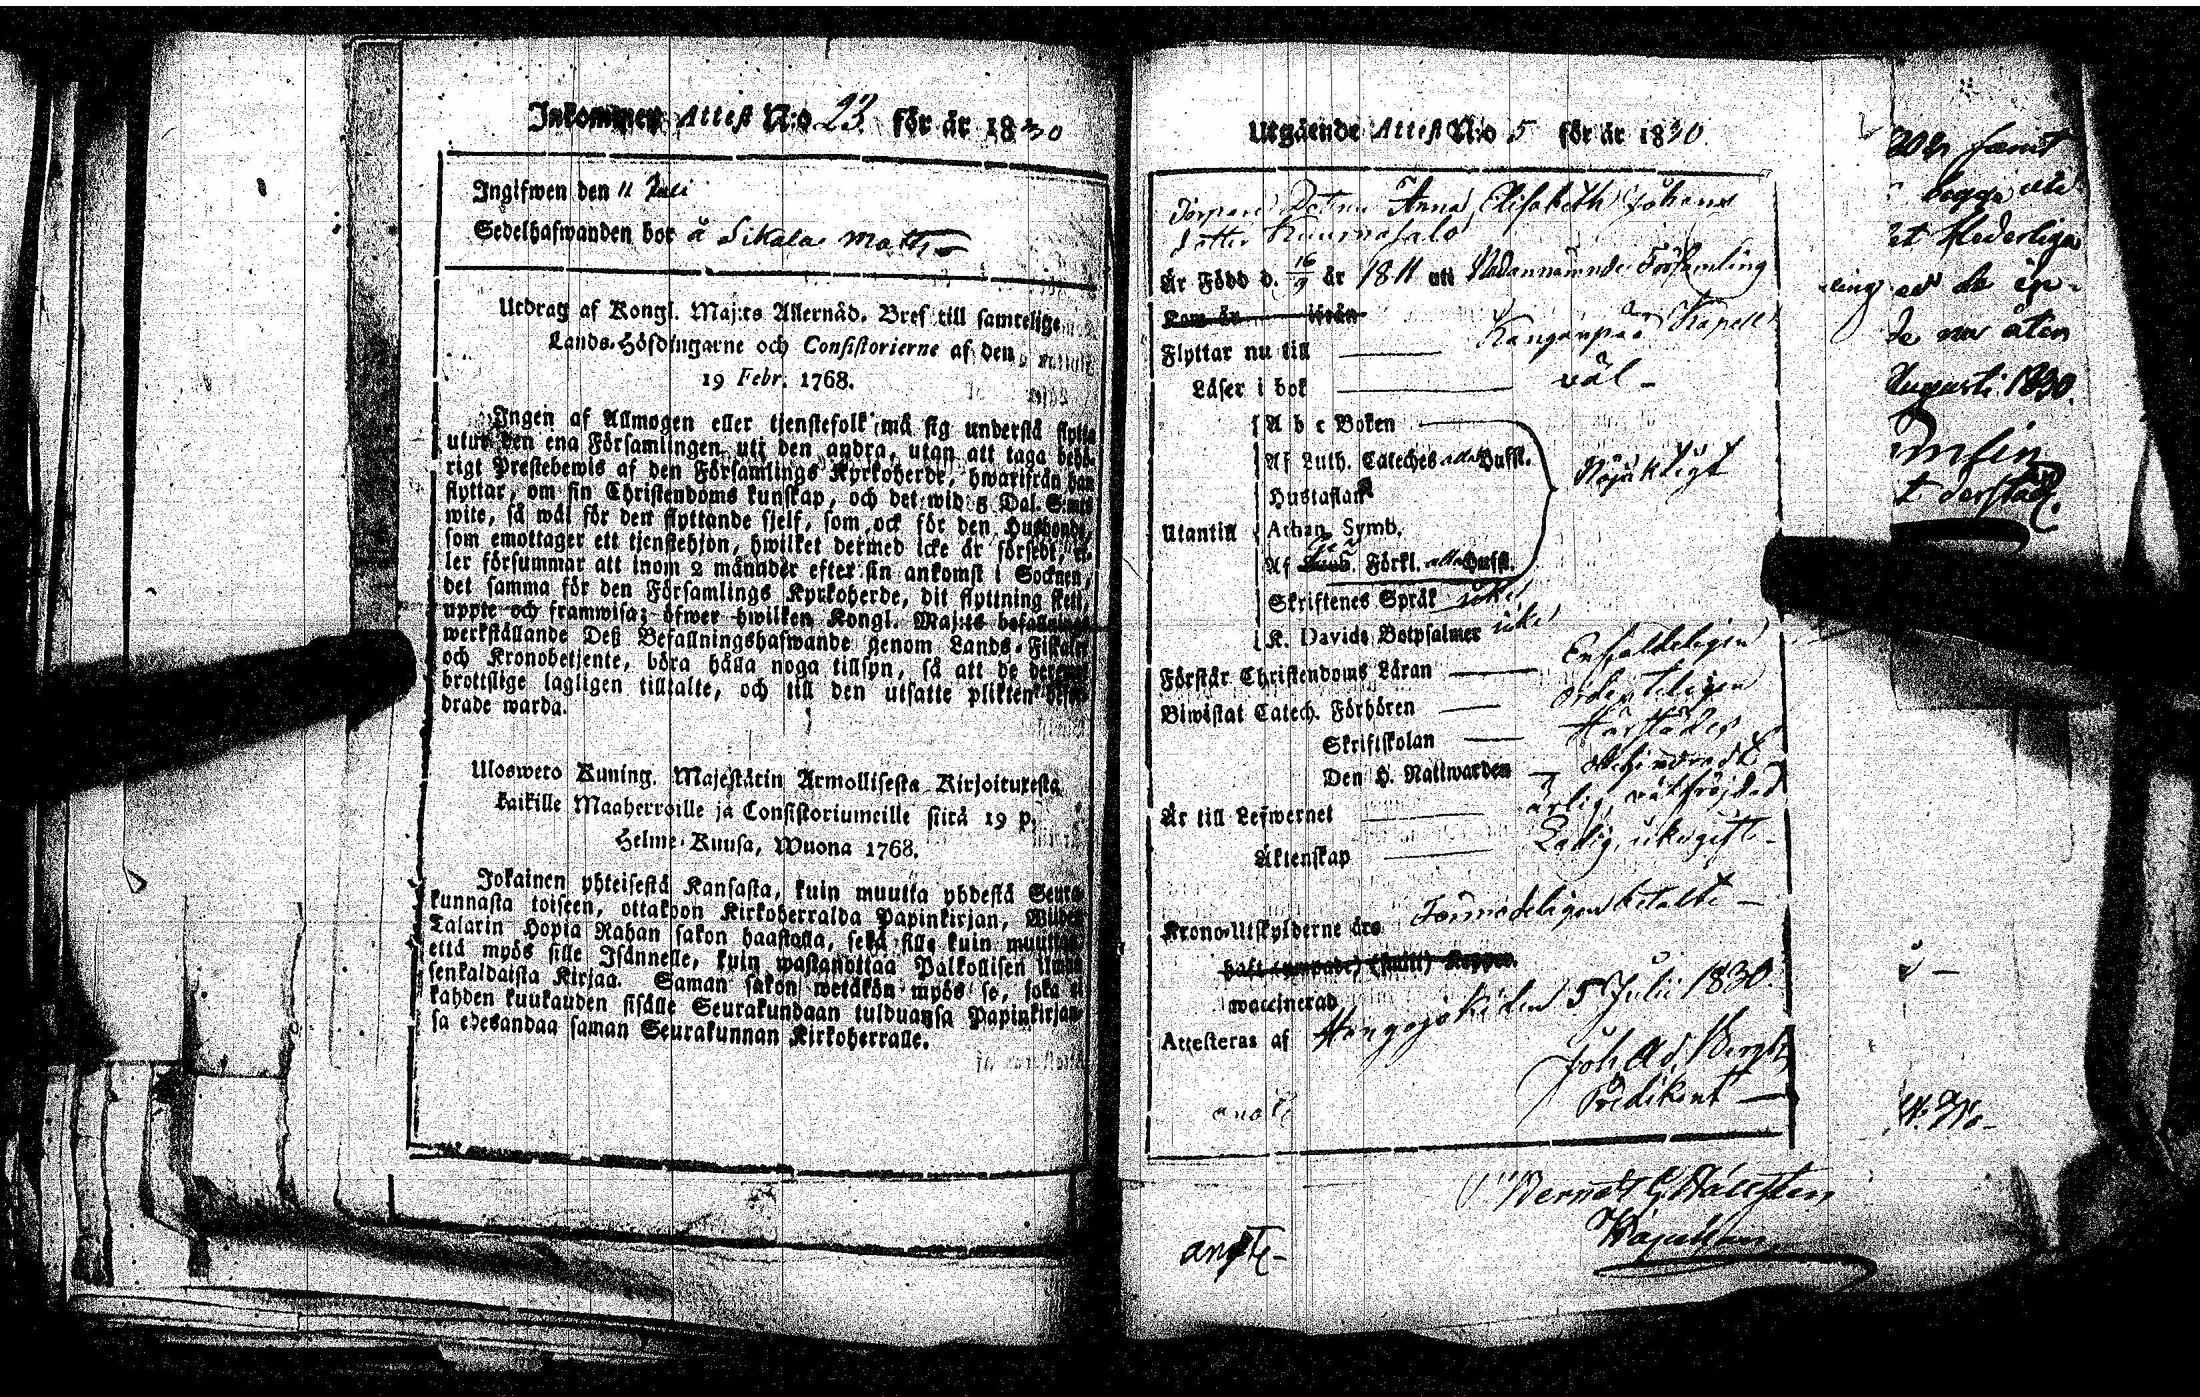 Inkommen Attest N:o 23. för år 1830
Ingifwen den 11 Juli
Sedelhafwanden bor å Sikala Matts
Utdrag af Kongl. Maj:ts Allernåd. Bref till samtelige
Lands-Höfdingarne och Consistorierne af den
19 Febr. 1768.
Ingen af Allmogen eller tjenstefolk må sig understå flytta
utur den ena Församlingen uti den andra, utan att taga behö-
rigt Prestebewis af den Församlings Kyrkoherde, hwarifrån han
flyttar, om sin Christendoms kunskap, och det wid 3 Dal. S:mts
wite, så wäl för den flyttande sjelf, som ock för den Husbonde,
som emottager ett tjenstehjon, hwilket dermed icke är försedt, el-
ler försummar att inom 2 månader efter sin ankomst i Socknen,
det samma för den Församlings Kyrkoherde, dit flyttning sker,
uppte och framwisa; öfwer hwilken Kongl. Maj:ts befallnings
werkställande Deß Befallningshafwande genom Lands-Fiskaler
och Kronobetjente, böra hålla noga tillsyn, så att de deremot
brottslige lagligen tilltalte, och till den utsatte plikten befor-
drade warda.
Ulosweto Kuning. Majestätin Armollisesta Kirjoituxesta
kaikille Maaherroille ja Consistoriumeille siitä 19 p.
Helme-Kuusa, Wuona 1768.
Jokainen yhteisestä Kansasta, kuin muutta yhdestä Seura-
kunnasta toiseen, ottakoon Kirkoherralda Papinkirjan, Wiiden
Talarin Hopia Rahan sakon haastolla, sekä sille kuin muuttaa,
että myös sille Isännelle, kuin wastanottaa Palkollisen ilman
senkaldaista Kirjaa. Saman sakon wetäkön myös se, joka ei
kahden kuukauden sisälle Seurakundaan tulduansa Papinkirjan-
sa edesandaa saman Seurakunnan Kirkoherralle.
Utgående Attest N:o 5 för år 1830.
Torpare Dottren Anna Elisabeth Johans
dotter Kuurnasalo
Är Född d. 16/9 år 1811 uti Nedannämnde Församling
Kom år ifrån
Flyttar nu till Kanganpää Kapell
Läser i bok väl -
A b c Boken
Af Luth. Cateches alla Hufst.
Nöjaktigt
Hustaflan
Utantill Athan. Symb.
Af Förkl. alla Hufst.
Skriftenes Språk icke
K. Davids Botpsalmer icke
Förstår Christendoms Läran Enfaldeligen
Biwistat Catech. Förhören ordenteligen
Skriftskolan Härstädes
Den H. Nattwarden obehindradt
Är till Lefwernet ärlig, välfrejdad
Äktenskap Ledig, icke gift -
Krono-Utskylderne äro Förmodeligen betalte -
haft (ympade) (skutit) Koppor.
waccinerad
Attesteras af Hongojoki den 5 Julii 1830.
Joh. Ad. Bergh
Predikant
samt
begge
Augusti 1830.